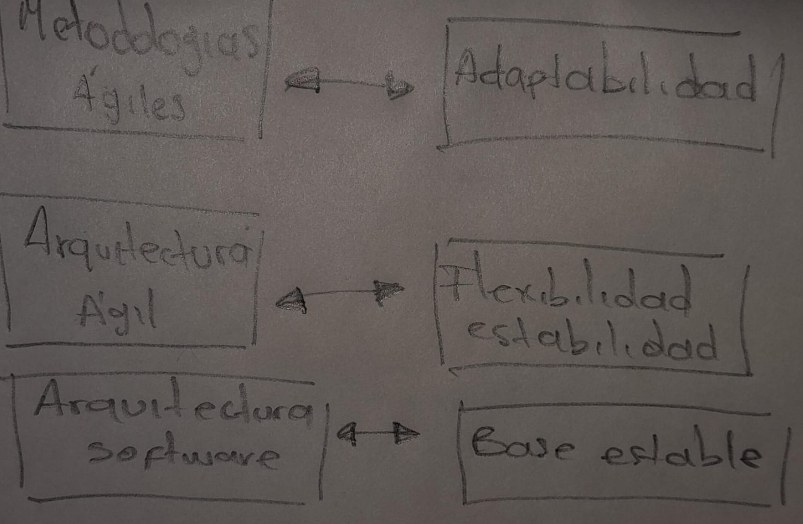 Metodologías
Ágiles
Adaptabilidad
Arquitectura
Ágil
Flexibilidad
estabilidad
Arquitectura
software
Base estable